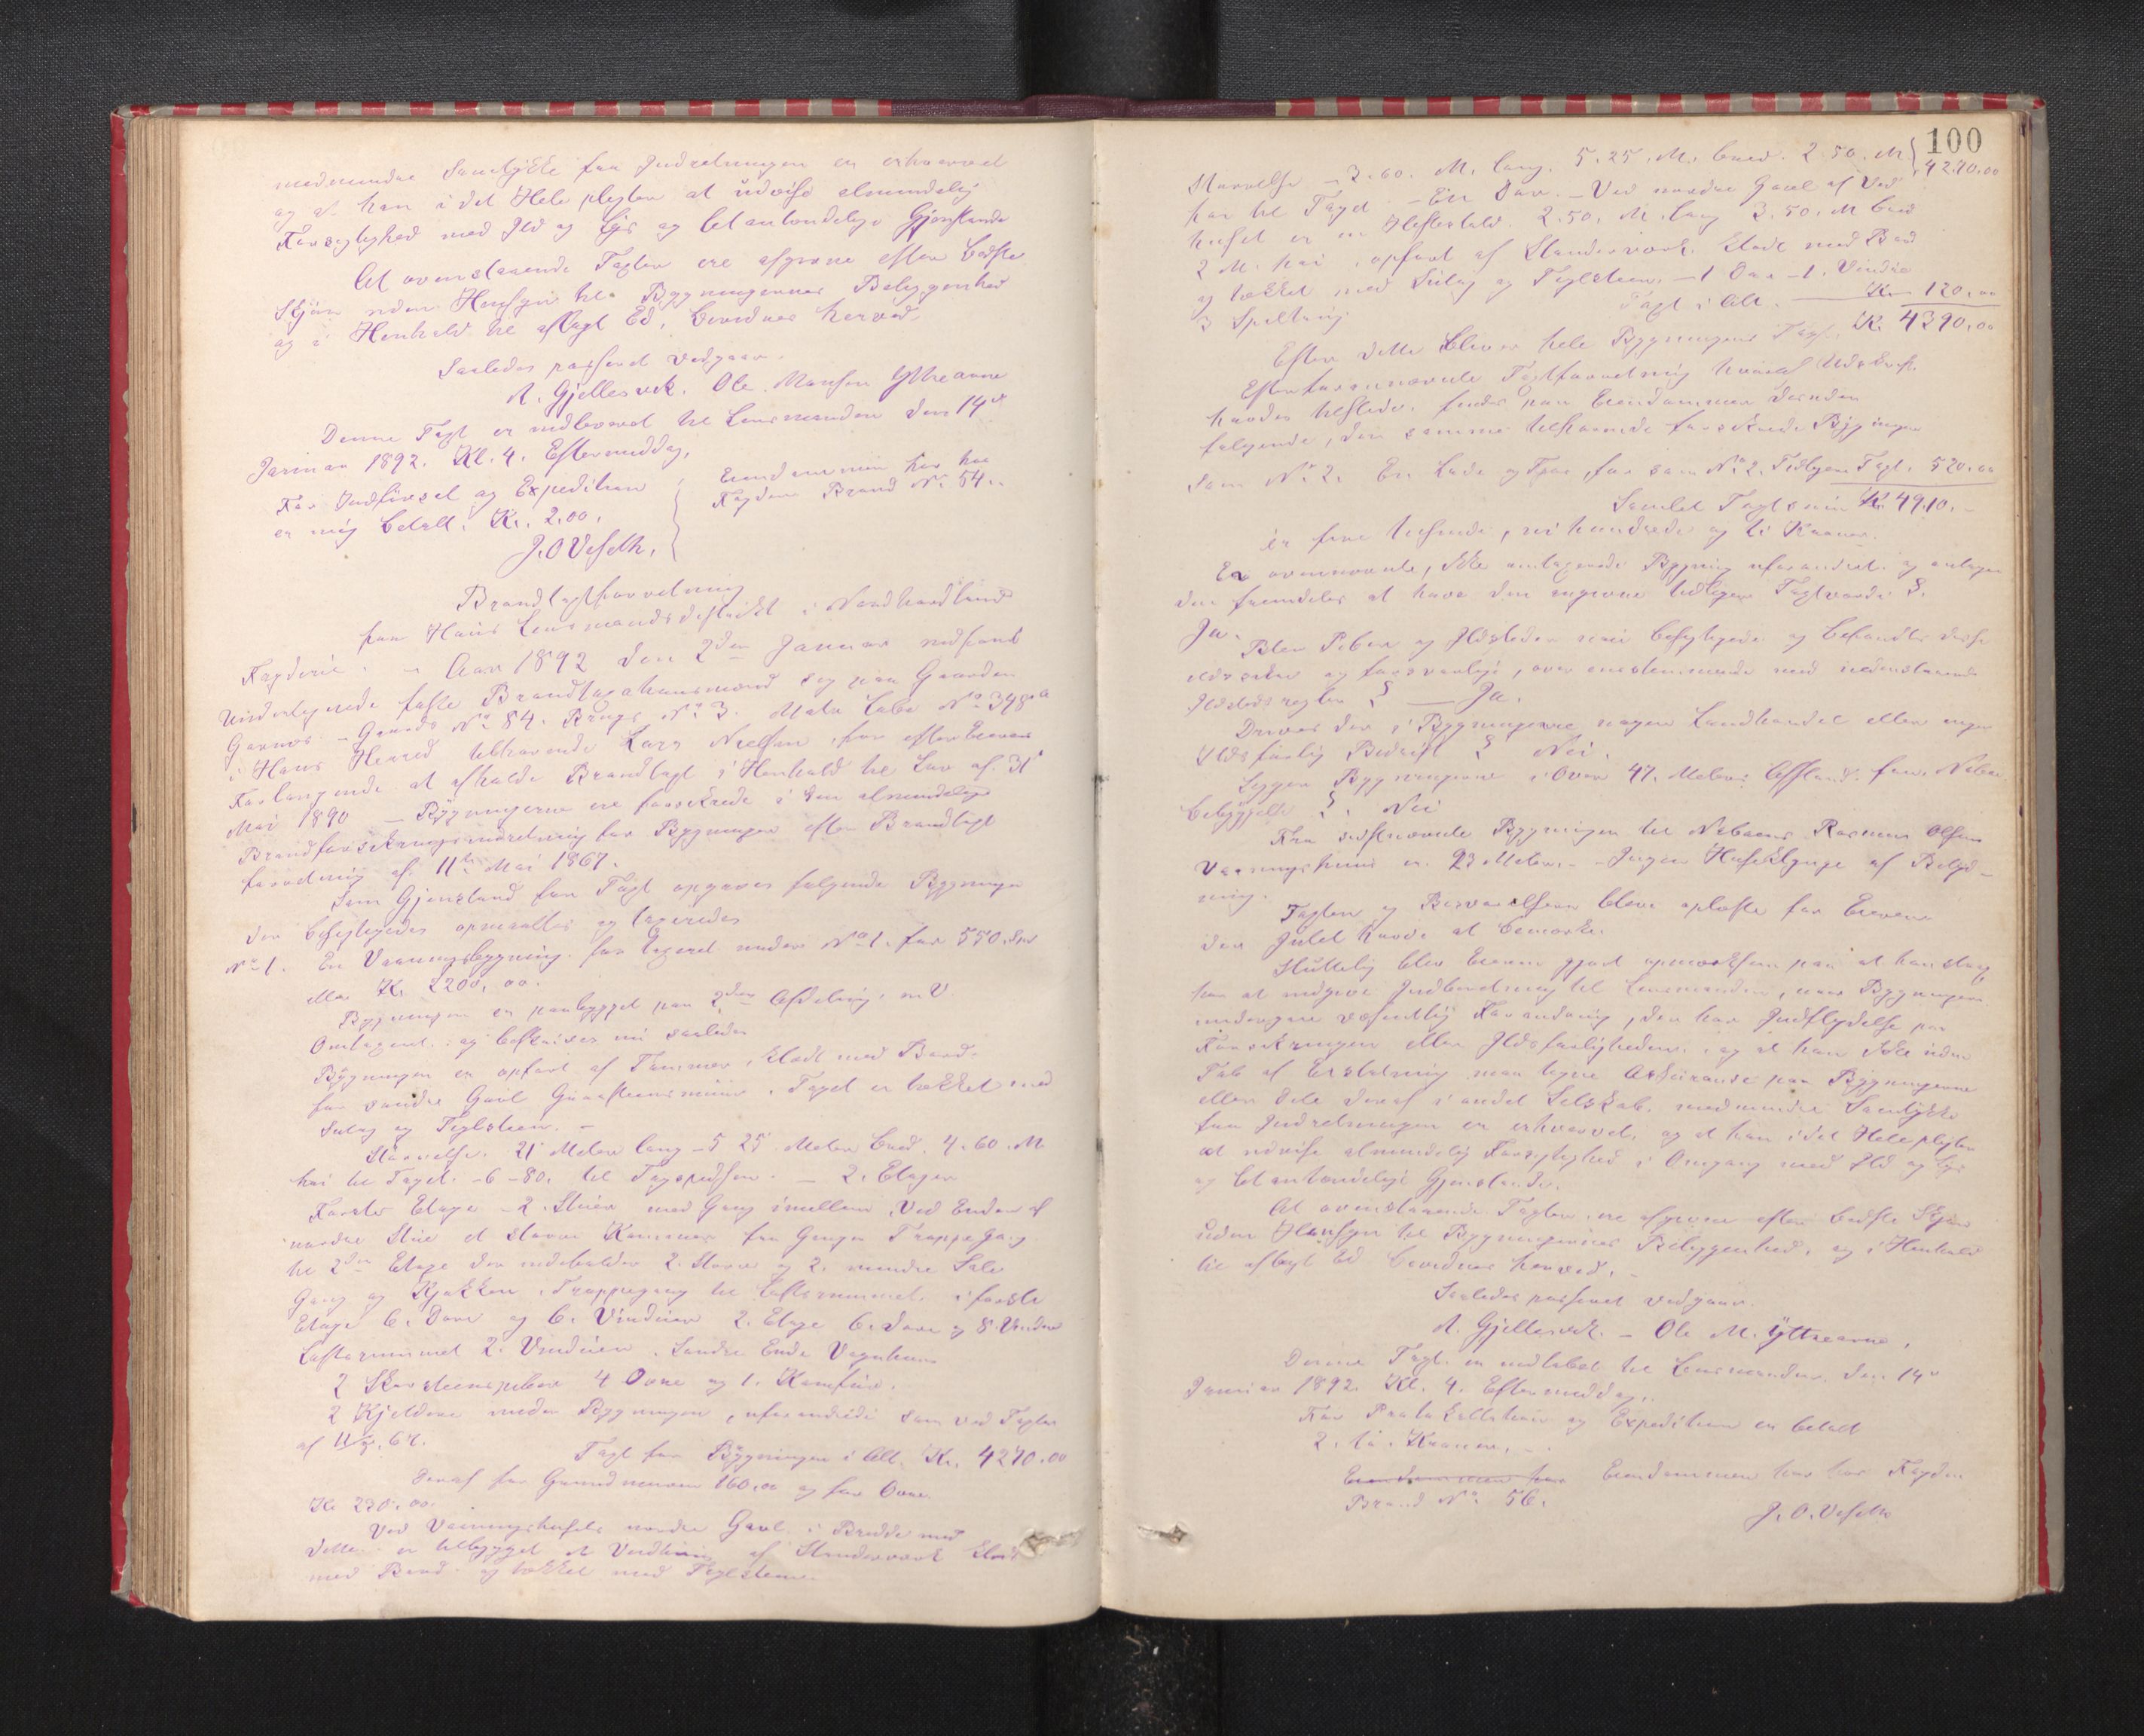 medmindre Samtykke fra Indretningen er erhvervet
og at han i det Hele pligter at udvise almindelig
Forsigtighed med Ild og Lys og letantændelige Gjenstande
At ovenstaaende Taxter ere afgivne efter bedste
Skjøn uden Hensyn til Bygningernes Beliggenhed
og i Henhold til aflagt Ed, bevidnes herved.
Saaledes passeret vedgaar.
A. Gjellesvik. Ole Monsen Yttrearne
Denne Taxt er indleveret til Lensmanden den 14de
Januar 1892. Kl. 4. Eftermiddag.
For Indførsel og Expedition
er mig betalt. Kr. 2.00.
J. O Veseth.
Eiendommen har
Brand No 54.
Brandtaxtforretning
fra Haus Lensmandsdistrikt i Nordhordlands
Fogderie. - Aar 1892 den 2den Januar indfandt
undertegnede faste Brandtaxationsmænd sig paa Gaarden
Garnæs - Gaards No 84. Brugs No 3. Matr Løbe No 398a
i Haus Herred tilhørende Lars Nielsen, for efter Eierens
Forlangende at afholde Brandtaxt i Henhold til Lov af 31
Mai 1890 - Bygningerne ere forsikrede i den almindelige
Brandforsikringsindretning for Bygninger efter Brandtaxt
forretning af 11te Mai 1867.
Som Gjenstand for Taxt opgaves følgende Bygninger
der besigtigedes opmaaltes og taxeredes
No 1. En Vaaningsbygning. før taxeret under No 1. for 550. Spd
eller Kr. 2200,00.
Bygningen er paabygget paa 2den Afdeling.
Omtaxeret. og beskrives nu saaledes
Bygningen er opført af Tømmer, klædt med Bord.
før søndre Gavl Graasteensmuur. Taget er tækket med
Sutag og Teglsteen. -
Størrelse. 21 Meter lang - 5 25 Meter bred. 4.60. M
høi til Taget. - 6 - 80. til Tagspidsen. - 2. Etager
Første Etage - 2. Stuer med Gang imellem. Ved Enden af
nordre Stue et større Kammer fra Gangen Trappegang
til 2den Etage der indeholder 2. større og 2. mindre Sale
Gang og Kjøkken. Trappegang til Loftsrummet. i første
Etage 6. Døre og 6. Vinduer 2. Etage 6. Døre og 8. Vinduer
Loftsrummet 2. Vinduer. Søndre Ende
2 Skorsteenspiber 4 Ovne og 1. Komfur.
2 Kjeldere under Bygningen, uforandrede som ved Taxten
af 11/5. 67.
Taxt for Bygningen i Alt. Kr. 4270.00
Deraf for Grundmuren 160,00 og for Ovne
Kr 230.00.
Ved Vaaningshusets nordre Gavl i Bredde med
dette er tilbygget et Vedhuus af Stenderværk klædt
med Bord og tækket med Teglsteen.
100
Størrelse - 3.60. M. lang. 5.25. M. bred. 2.50. M 4270.00
høi til Taget. - En Dør. - Ved nordre Gavl af Ved
huset er en Hestestald. 2.50. M. lang 3.50. M bred
2 M. høi, opført af Stenderværk. klædt med Bord
og tækket med Sutag og Teglsteen. - 1 Dør - 1. Vindue
3 Spiltoug. Taxt i Alt. Kr 120.00
Efter dette bliver hele Bygningens Taxt. Kr. 4390,00
Efter foranværende Taxtforretning hvoraf Udskrift
havdes tilstede, findes paa Eiendommen desuden
følgende, den samme tilhørende forsikrede Bygninger
som No 2. En Lade og Fjøs, før som No 2. Tidligere Taxt. 520.00
Samlet Taxtsum Kr 4910. -
er fire tusinde, ni hundrede og ti Kroner.
Er ovennævnte, ikke omtaxerede Bygning uforandret og antages
den fremdeles at have den angivne tidligere Taxtværdi ?
Ja.
Blev Piber og Ildsteder nøie besigtigede og befandtes disse
ildssikre og forsvarlige, overensstemmende med nedenstaaende
Ildstedsregler ? - Ja.
Drives der i Bygningerne nogen Landhandel eller nogen
Ildsfarlig Bedrift ? Nei.
Ligger Bygningerne i Over 47. Meters Afstand fra Nabo
bebyggelse ? . Nei
Fra sidstnævnte Bygningen til Naboens Rasmus Olsens
Vaaningshuus er 23 Meter. - Ingen af Betyd-
ning.
Taxten og Besvarelserne bleve oplæste for Eieren
der Intet havde at bemærke.
Sluttelig blev Eieren gjort opmærksom paa at han strax
har at indgive Indberetning til Lensmanden, naar Bygningen
undergaar væsentlig Forandring, der har Indflydelse paa
Forsikringen eller Ildsfarligheden, og at han ikke uden
Tab af Erstatning maa tegne Assurance paa Bygningerne
eller Dele deraf i andet Selskab. medmindre Samtykke
fra Indretningen er erhvervet, og at han i det Hele pligter
at udvise almindelig Forsigtighed i Omgang med Ild og Lys
og letantændelige Gjenstande.
At ovenstaaende Taxter, ere afgivne efter bedste Skjøn
uden Hensyn til Bygningernes Beliggenhed, og i Henhold
til aflagt Ed bevidnes herved. -
Saaledes passeret vedgaar.
A. Gjellesvik. - Ole M. Yttrearne,
Denne Taxt er indlevet til Lensmanden den 14de
Januar 1892. Kl. 4. Eftermiddag.
For Protokollation og Expedition er betalt
2. to. Kroner. -
Eiendommen har Eiendommen har hos Fogden
Brand No 56.
J. O. Veseth